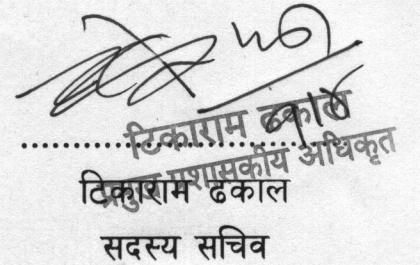 टिकाराम ढकाल
प्रमुख प्रशासकीय अधिकृत
टिकाराम ढकाल
सदस्य सचिव